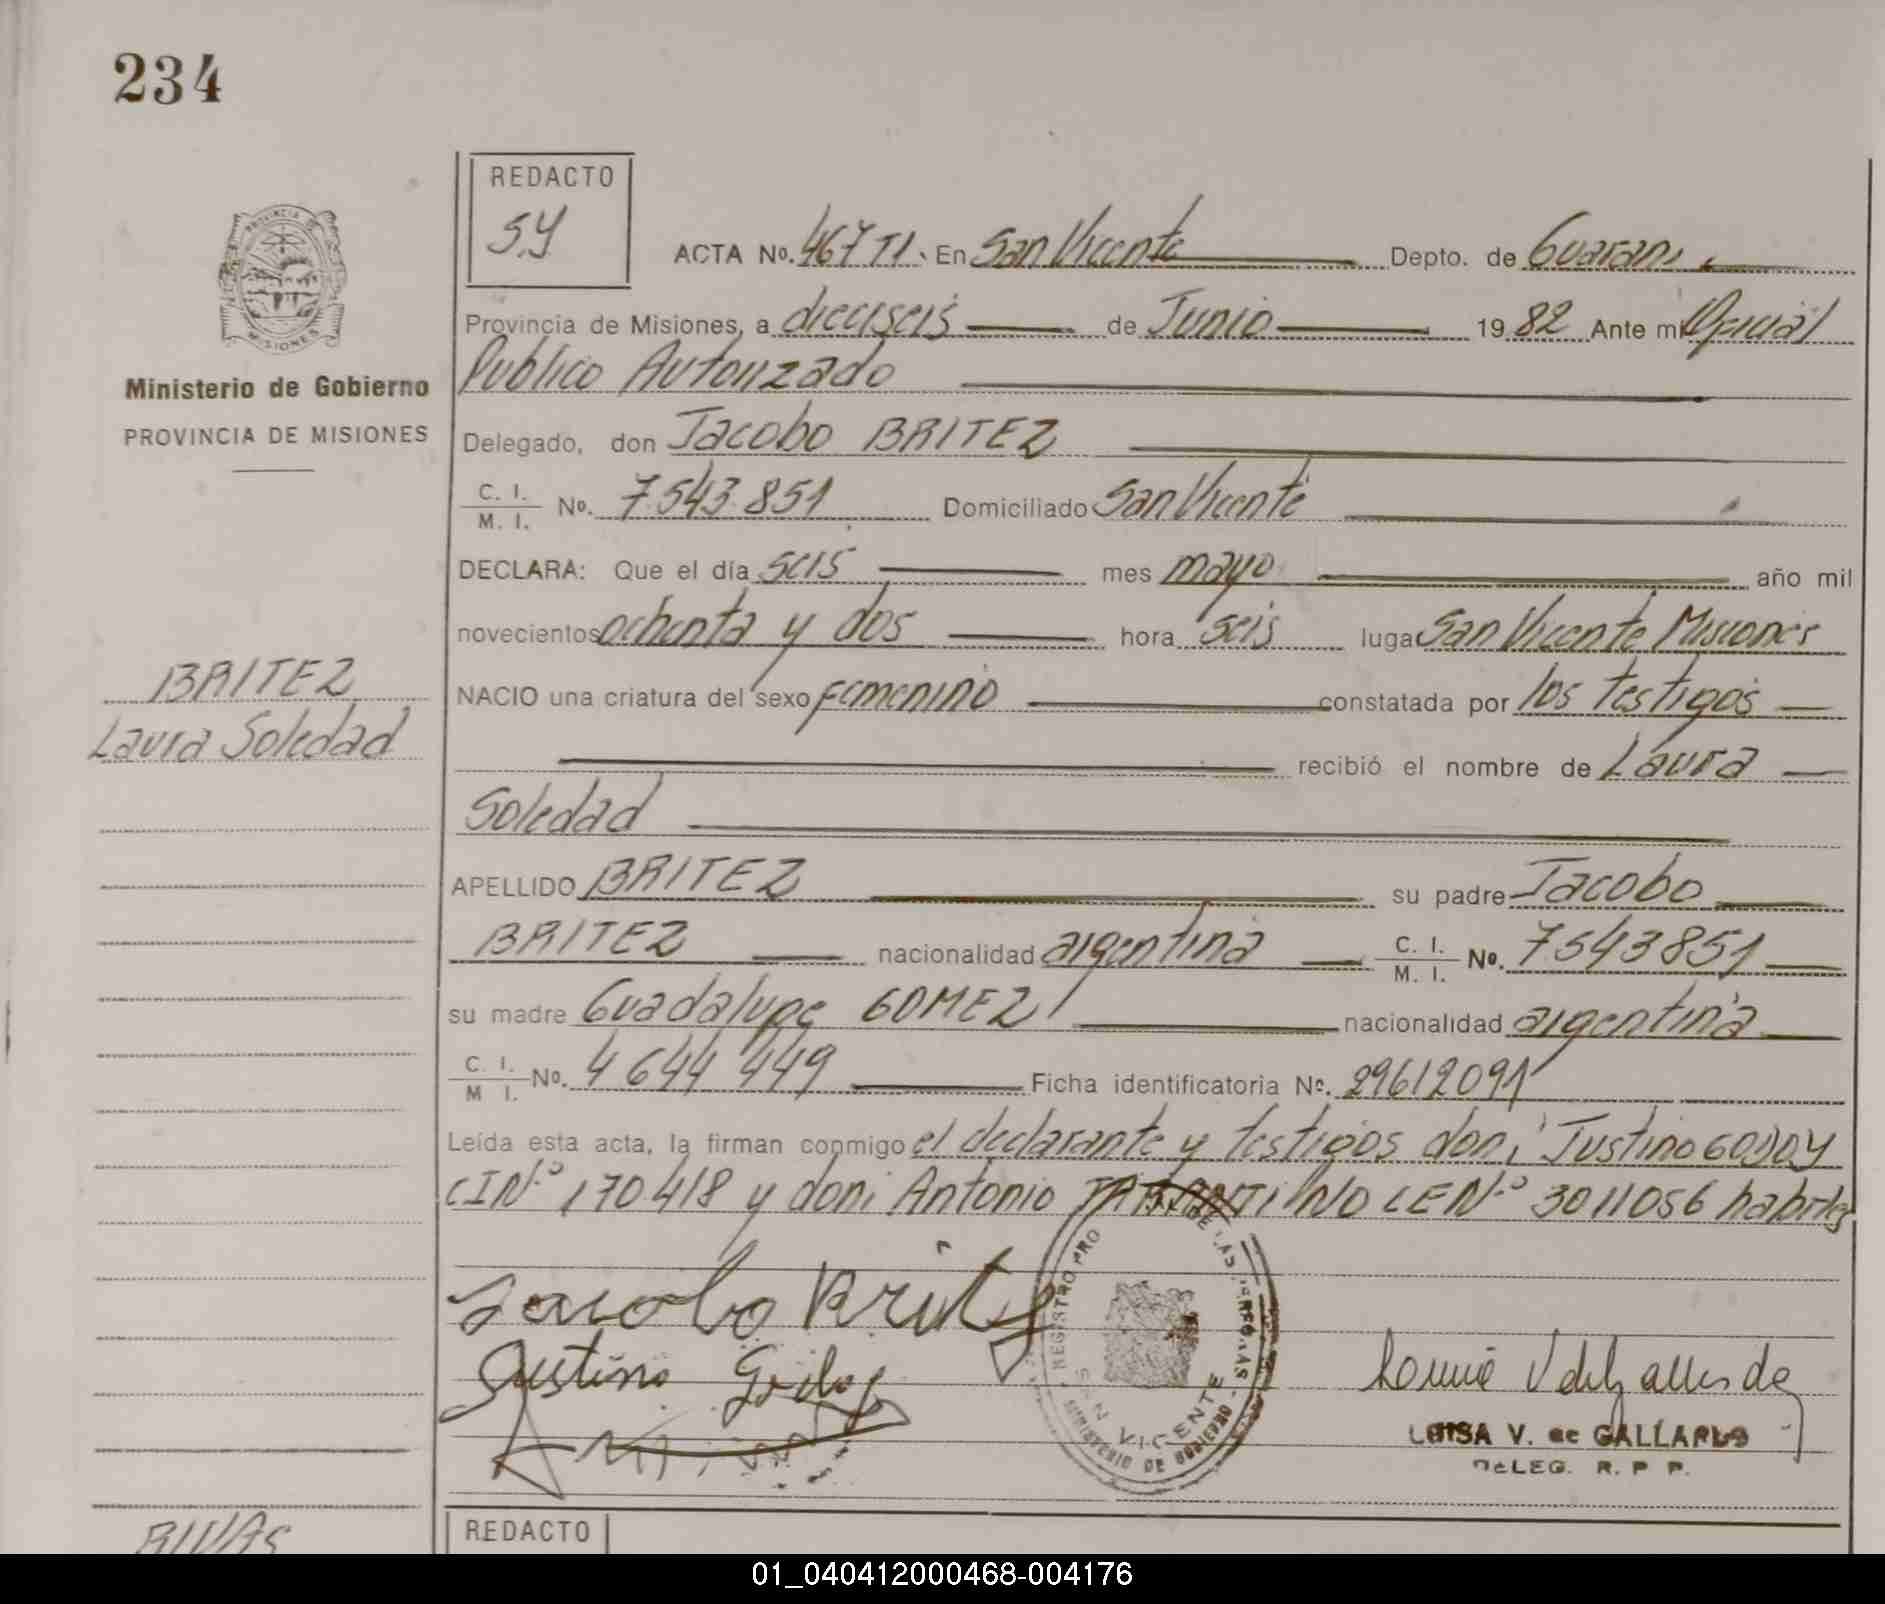 234
REDACTO
S.Y
ACTA No. 467 TI. En San Vicente Depto. de Guarani
Provincia de Misiones, a dieciseis de Junio 1982 Ante mi Oficial
Publico Autorizado
Ministerio de Gobierno
PROVINCIA DE MISIONES
Delegado, don Jacobo BRITEZ
C. I. / M. I. No. 7.543.851 Domiciliado San Vicente
DECLARA: Que el día seis mes mayo año mil
novecientos ochenta y dos hora seis lugar San Vicente Misiones
BRITEZ
Laura Soledad
NACIO una criatura del sexo femenino constatada por los testigos
recibió el nombre de Laura
Soledad
APELLIDO BRITEZ su padre Jacobo
BRITEZ nacionalidad argentina C. I. / M. I. No. 7543851
su madre Guadalupe GOMEZ nacionalidad argentina
C. I. / M. I. No. 4644449 Ficha identificatoria No. 29612091
Leída esta acta, la firman conmigo el declarante y testigos don; Justino GODOY
CI Nº 170418 y don; Antonio LE Nº 3011056 habiles
Jacobo Britez
Justino Godoy
REGISTRO PRO DE LAS PERSONAS
MINISTERIO DE GOBIERNO
VICENTE
LUISA V. de GALLARDO
DELEG. R. P. P.
REDACTO
RIVAS
01_040412000468-004176